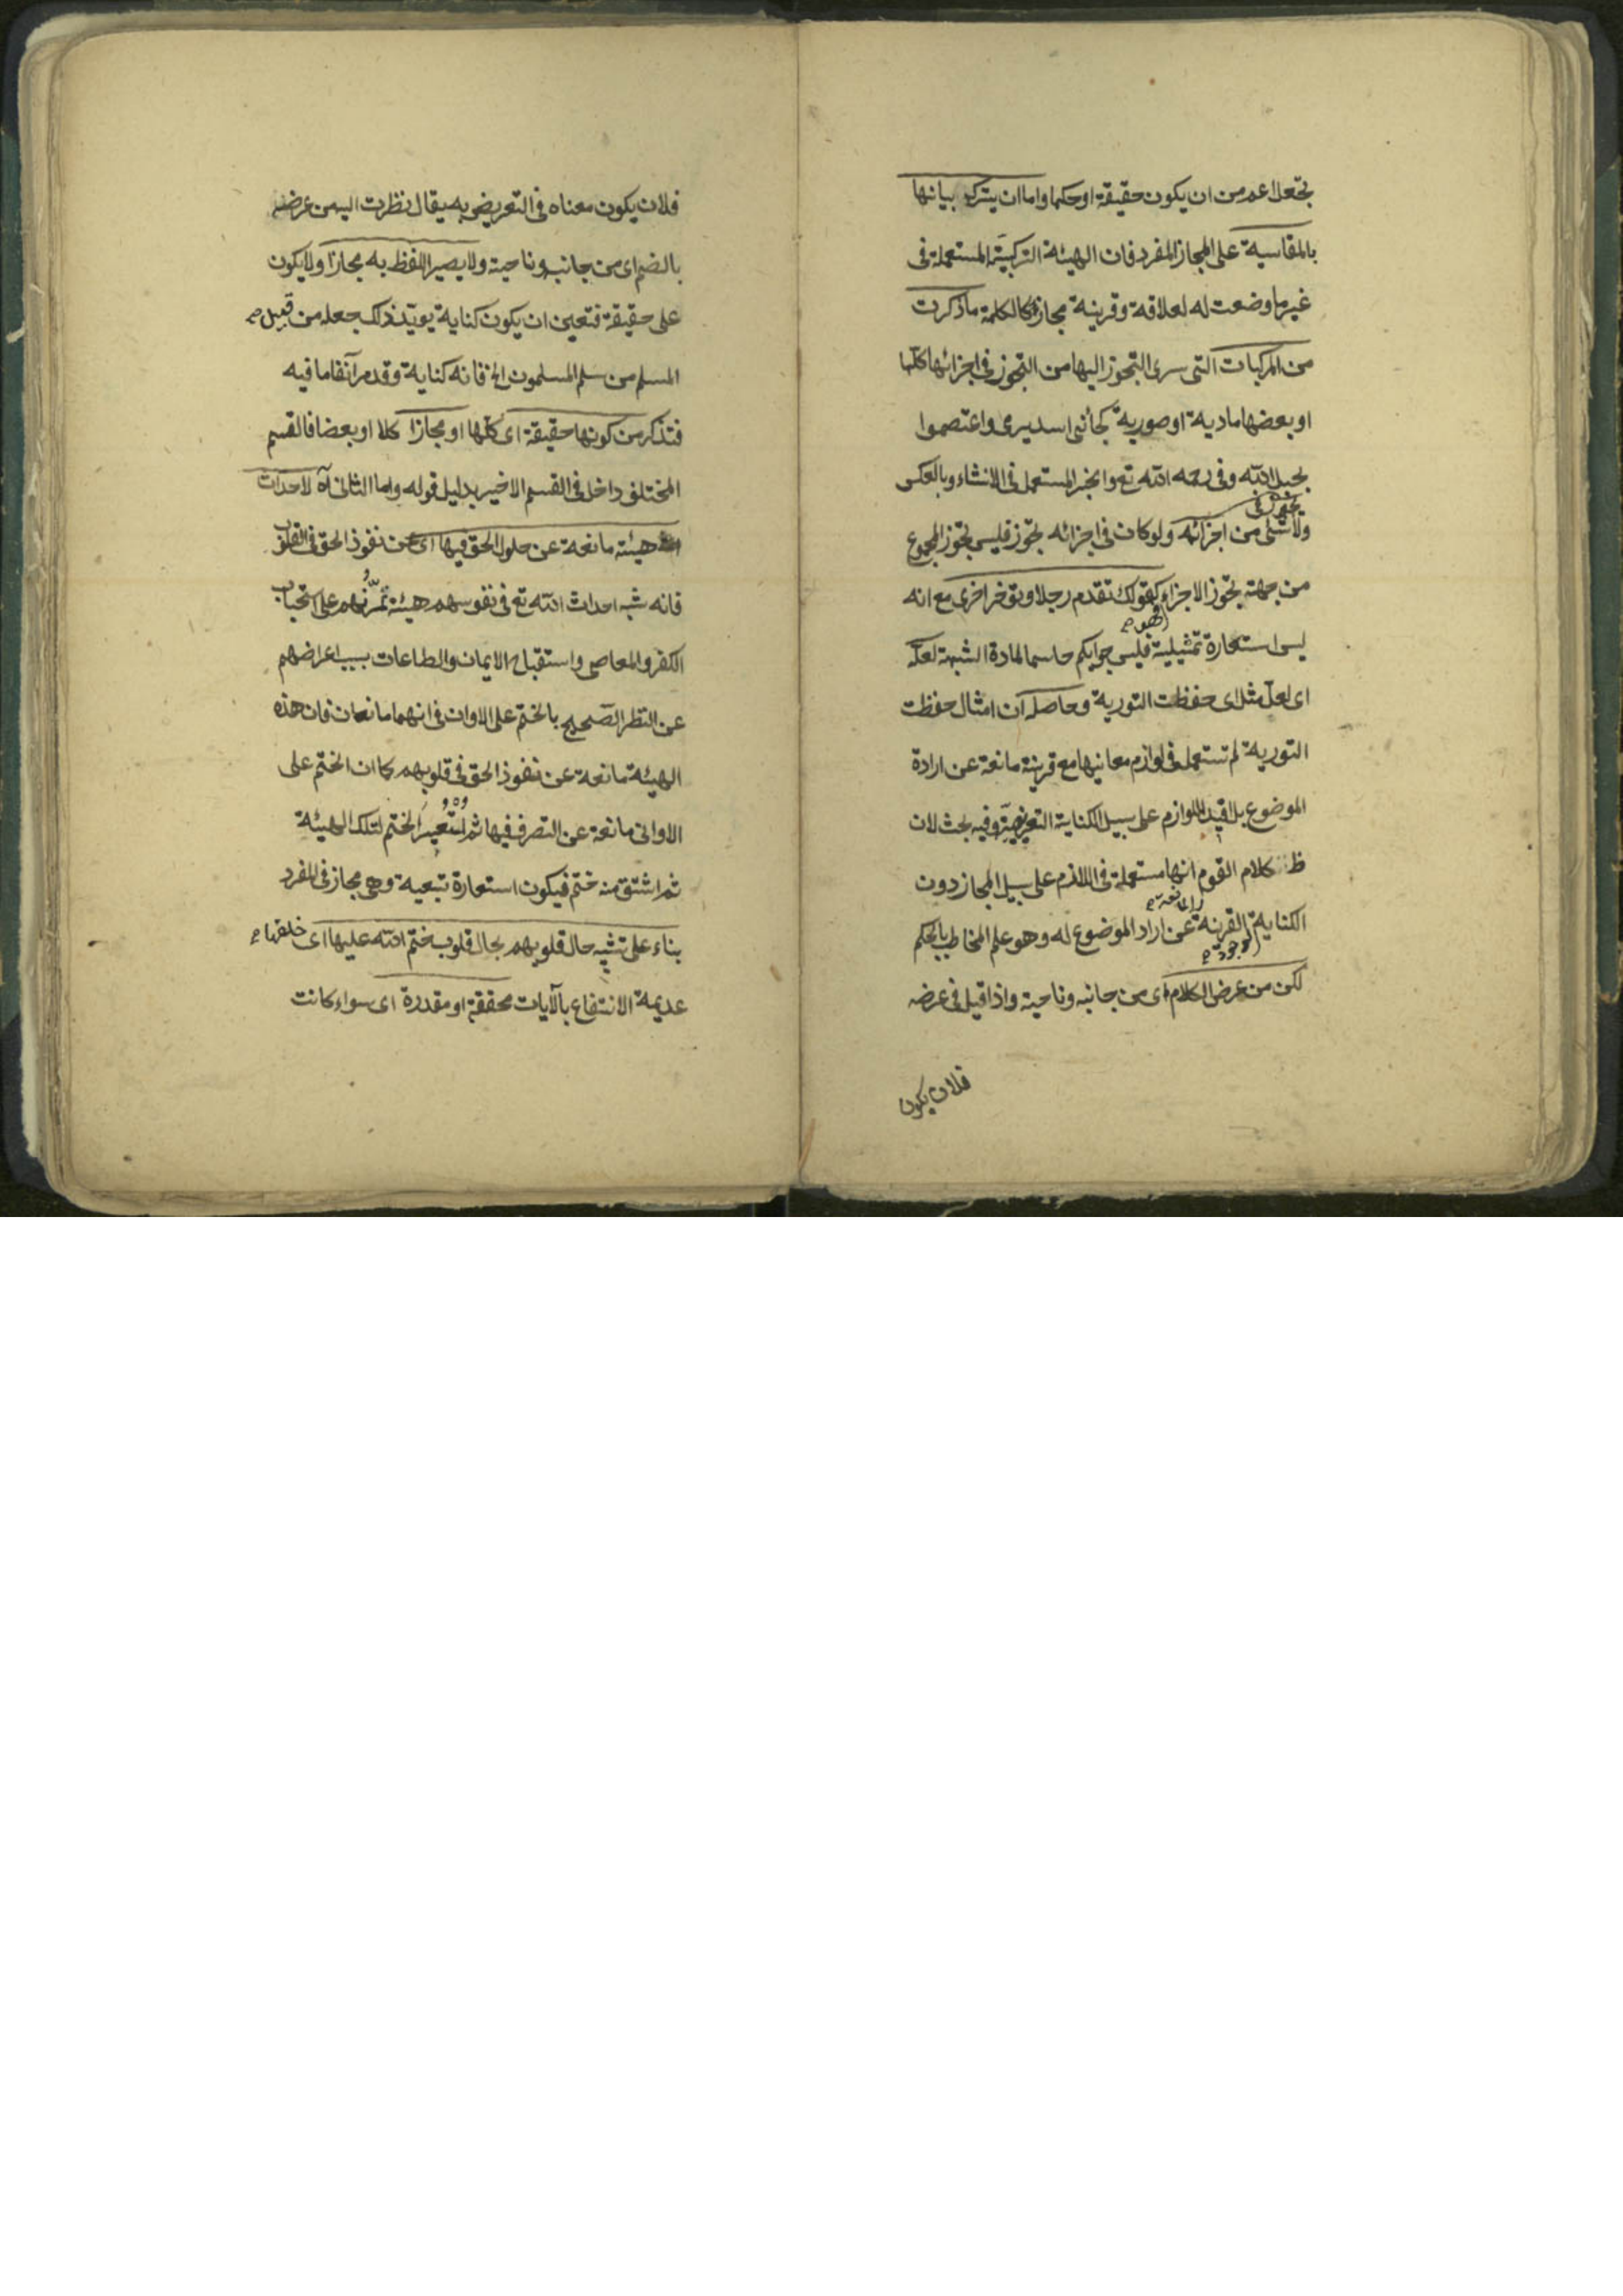 بجعل اعم من ان يكون حقيقة او حكما واما ان يترك بيانها
بالمقايسة على المجاز المفرد فان الهيئة التركيبية المستعملة فى
غير ما وضعت له لعلاقة وقرينة مجاز كالكلمة ما ذكرت
من المركبات التى سرى التجوز اليها من التجوز فى اجزائها كلها
او بعضها مادية او صورية كجائنى اسد يرمى واعتصموا
بحبل الله وفى رحمه الله تع والخبر المستعمل فى الانشاء وبالعكس
تجوز فى
ولا شئ من اجزائه ولو كان فى اجزائه تجوز فليس تجوز المجموع
من جهة تجوز الاجزاء كقولك تقدم رجلا وتؤخر اخرى مع انه
ليس استعارة تمثيلية فليس جوابكم حاسما لمادة الشبهة لعله
اى لعل مثل اى حفظت التورية وحاصله ان امثال حفظت
التورية لم تستعمل فى لوازم معانيها مع قرينة مانعة عن ارادة
الموضوع بل اللوازم على سبيل الكناية التعريضية وفيه بحث لان
ظ كلام القوم انها مستعملة فى اللازم على سبيل المجاز دون
المانعة
الكناية القرنة عن اراد الموضوع له وهو علم المخاطب بالحكم
موجودة
لكن من عرض الكلام اى من جانبه وناحيته واذا قيل فى عرضه
فلان يكون
فلان يكون معناه فى التعريض به يقال نظرت اليه من عرضه
بالضم اى من جانبه وناحيته ولا يصير اللفظ به مجازا ولا يكون
على حقيقة فتعين ان يكون كناية يؤيد ذلك جعله من قبيل
المسلم من سلم المسلمون الخ فانه كناية وقد مر آنفا ما فيه
فتذكر من كونها حقيقة اى كلها او مجازا كلا او بعضا فالقسم
المختلف داخل فى القسم الاخير بدليل قوله واما الثانى آه لاحداث
هيئة مانعة عن حلول الحق فيها اى عن نفوذ الحق فى القلوب
فانه شبه احداث الله تع فى نفوسهم هيئة تمرنهم على استحباب
الكفر والمعاصى واستقباح الايمان والطاعات بسبب اعراضهم
عن النظر الصحيح بالختم على الاوان فى انهما مانعان فان هذه
الهيئة مانعة عن نفوذ الحق فى قلوبهم كما ان الختم على
الاوانى مانعة عن التصرف فيها ثم استعير الختم لتلك الهيئة
ثم اشتق منه ختم فيكون استعارة تبعية وهى مجاز فى المفرد
بناء على تشبيه حال قلوبهم بحال قلوب ختم الله عليها اى خلقها
عديمة الانتفاع بالآيات محققة او مقدرة اى سواء كانت